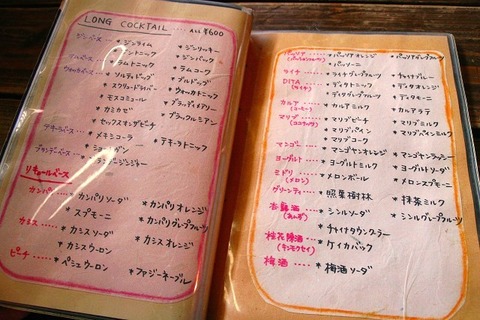 LONG COCKTAIL ..... ALL ¥600
ジンベース・・・ * ジンライム * ジンリッキー
* ジントニック * ジンバック
* ラムトニック * ラムコーク
ウォッカベース・・・ * ソルティドッグ * ブルドッグ
* スクリュードライバー * ウォッカトニック
* モスコミュール * ブラッディメアリー
* カミカゼ * ブラックルシアン
* セックスオンザビーチ
テキーラベース・・ * メキシコーラ * テキーラトニック
ブランデーベース・・・
リキュールベース
カンパリ・・・ * カンパリソーダ * カンパリオレンジ
* スプモーニ * カンパリグレープフルーツ
カシス・・・・ * カシスソーダ * カシスオレンジ
* カシスウーロン
ピーチ・・・・ * ペシェウーロン * ファジーネーブル
パッソア・・・・ * パッソアオレンジ * パッソアグレープフルーツ
* パッソーニ
ライチ・・・・ * ライチグレープフルーツ * チャイナブルー
DITA (ライチ) * ディタトニック * ディタオレンジ
* ディタグレープフルーツ * ディタモーニ
カルーア (コーヒー) * カルアミルク * カルアラテ
マリブ (ココナッツ) * マリブピーチ * マリブミルク
* マリブパイン * マリブパインミルク
* マリブコーク
マンゴー・・・ * マンゴヤンオレンジ * マンゴヤンラッシー
ヨーグルト・・・ * ヨーグルトミルク * ヨーグルトソーダ
ミドリ (メロン) * メロンボール * メロンスプモーニ
グリーンティー・・ * 照葉樹林 * 抹茶ミルク
杏露酒 (あんず) * シンルソーダ * シンルグレープフルーツ
* チャイナタウンクーラー
桂花陳酒 (キンモクセイ) * ケイカバック
梅酒・・・・ * 梅酒ソーダ